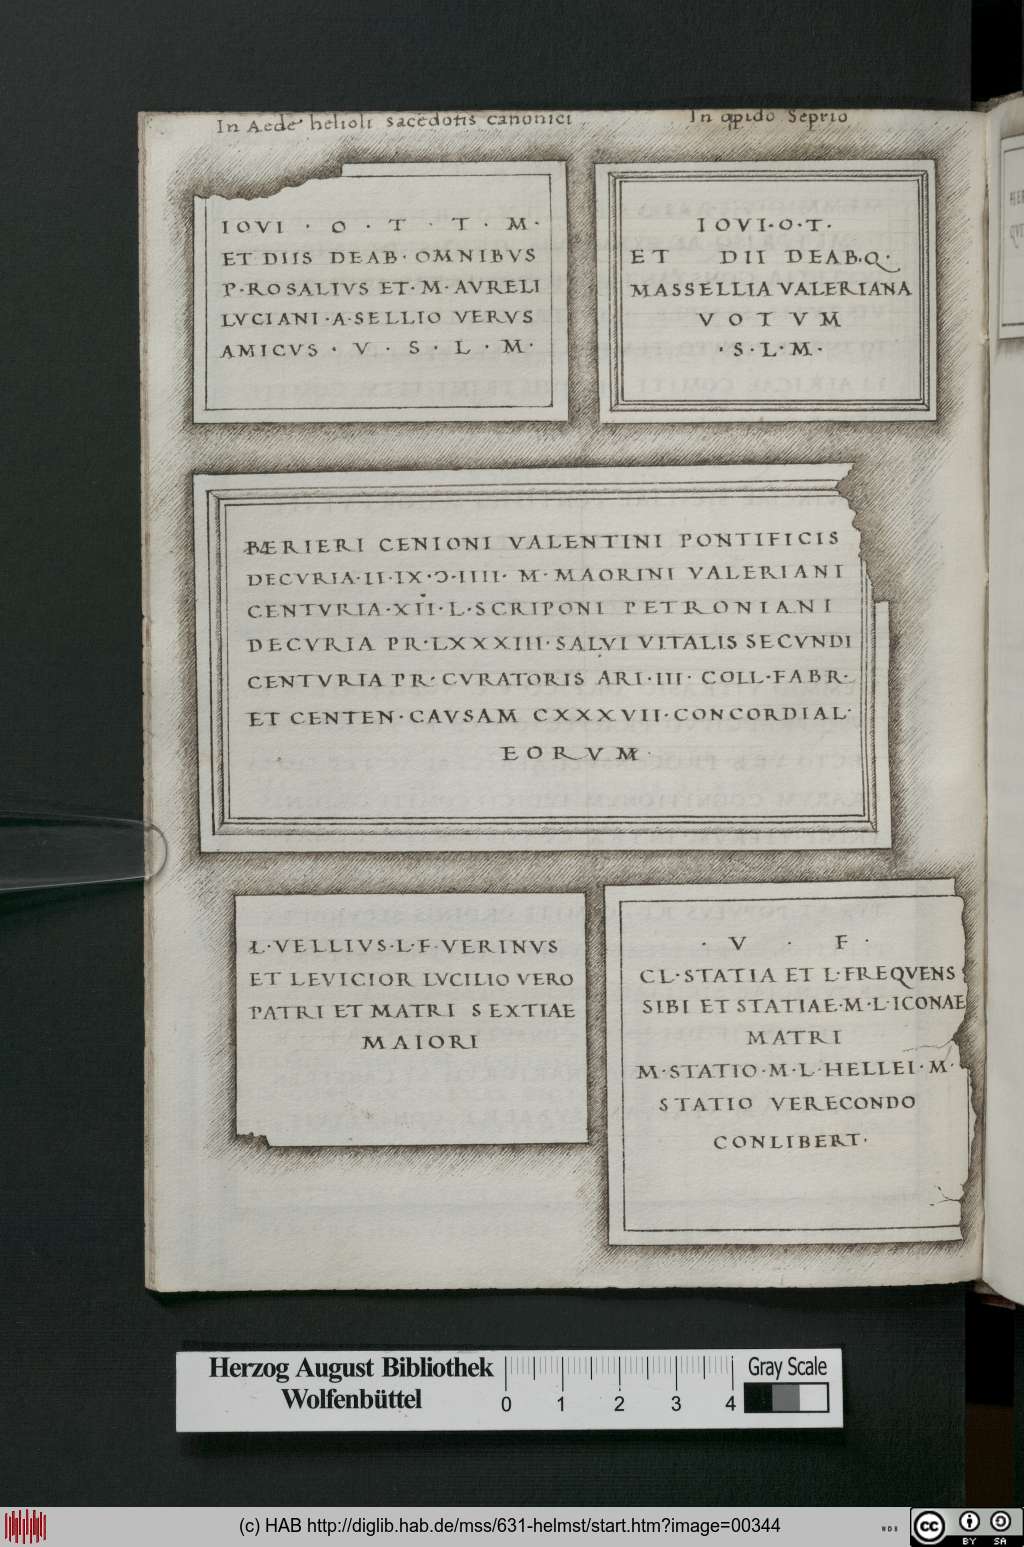 In Aede helioli sacedotis canonici
IOVI · O · T · T · M ·
ET DIIS DEAB · OMNIBVS
P · ROSALIVS ET · M · AVRELI
LVCIANI · A · SELLIO VERVS
AMICVS · V · S · L · M ·
In opido Seprio
IOVI · O · T ·
ET DII DEAB · Q ·
MASSELLIA VALERIANA
VOTVM
· S · L · M ·
BÆRIERI CENIONI VALENTINI PONTIFICIS
DECVRIA · II · IX · Ɔ · IIII · M · MAORINI VALERIANI
CENTVRIA · XII · L · SCRIPONI PETRONIANI
DECVRIA PR · LXXXIII · SALVI VITALIS SECVNDI
CENTVRIA PR · CVRATORIS ARI · III · COLL · FABR ·
ET CENTEN · CAVSAM CXXXVII · CONCORDIAL ·
EORVM ·
L · VELLIVS · L · F · VERINVS
ET LEVICIOR LVCILIO VERO
PATRI ET MATRI SEXTIAE
MAIORI
· V · F ·
CL · STATIA ET L · FREQVENS
SIBI ET STATIAE · M · L · ICONAE
MATRI
M · STATIO · M · L · HELLEI · M ·
STATIO VERECONDO
CONLIBERT ·
Herzog August Bibliothek
Wolfenbüttel
0 1 2 3 4
Gray Scale
(c) HAB http://diglib.hab.de/mss/631-helmst/start.htm?image=00344
WDB
cc BY SA